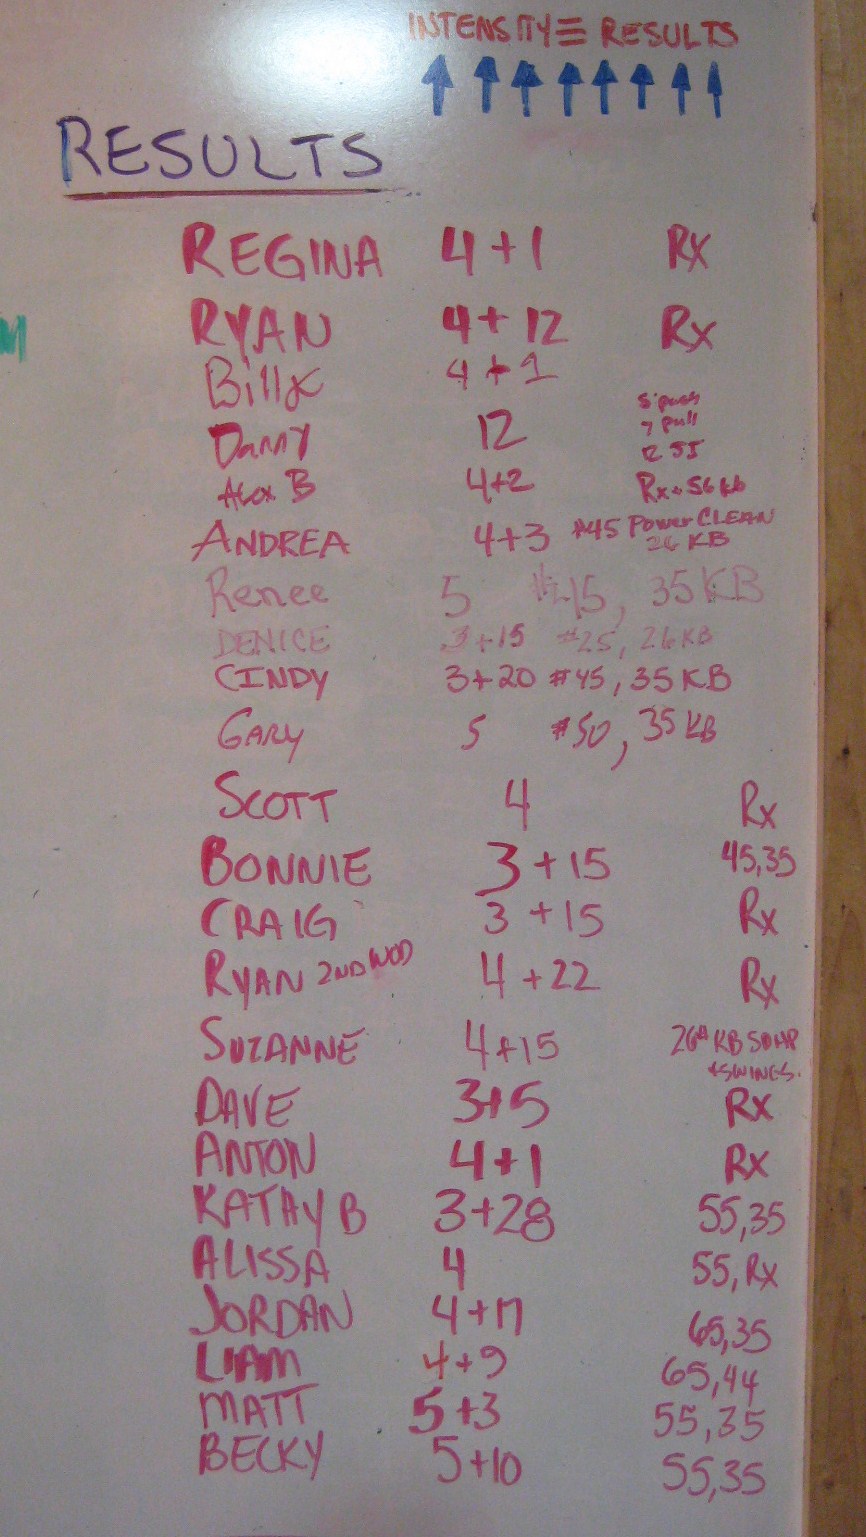 INTENSITY ≡ RESULTS
RESULTS
REGINA 4+1 Rx
RYAN 4+12 Rx
Billy 4+1
Danny 12 5 push
7 pull
12 SJ
Alex B 4+2 Rx + 56 kb
ANDREA 4+3 #45 POWER CLEAN
26 KB
Renee 5 #45, 35 KB
DENICE 3+15 #25, 26 KB
CINDY 3+20 #45, 35 KB
GARY 5 #50, 35 KB
SCOTT 4 Rx
BONNIE 3+15 45,35
CRAIG 3+15 Rx
RYAN 2ND WOD 4+22 Rx
SUZANNE 4+15 26# KB SDHP
+SWINGS.
DAVE 3+5 Rx
ANTON 4+1 Rx
KATHY B 3+28 55,35
ALISSA 4 55, Rx
JORDAN 4+17 65,35
LIAM 4+9 65,44
MATT 5+3 55,35
BECKY 5+10 55,35